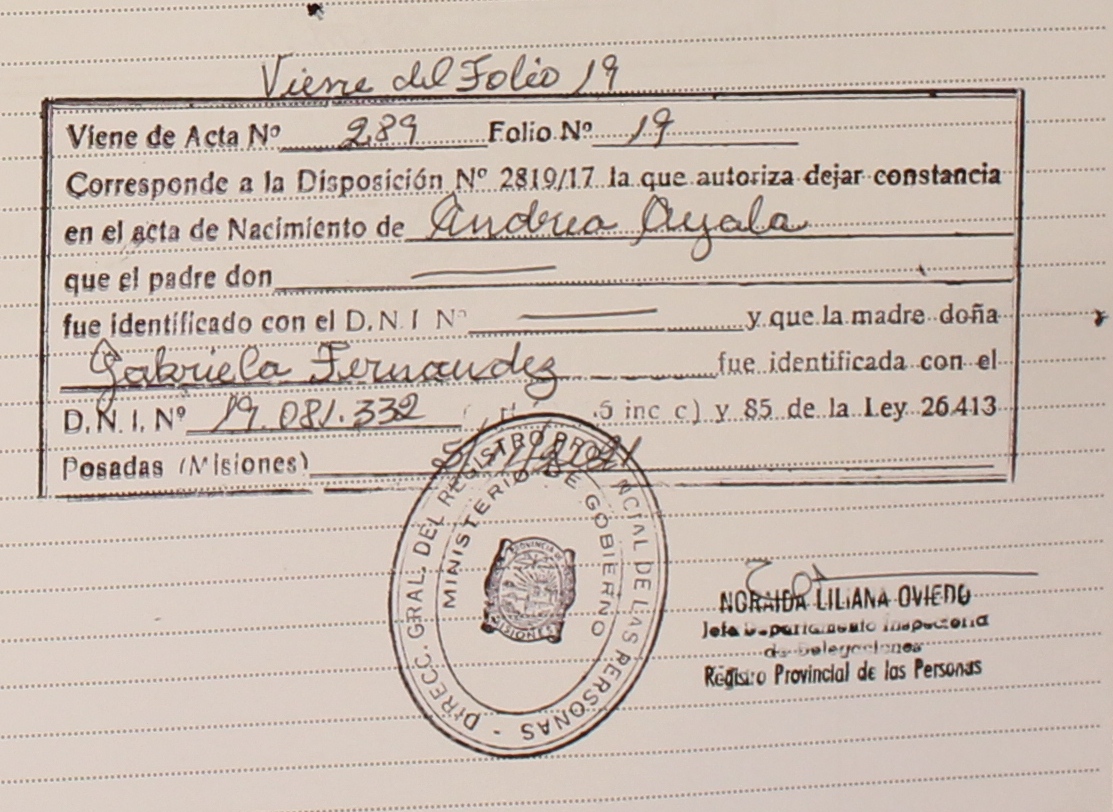 Viene del Folio 19
Viene de Acta Nº 289 Folio Nº 19
Corresponde a la Disposición Nº 2819/17 la que autoriza dejar constancia
en el acta de Nacimiento de Andrea Ayala
que el padre don
fue identificado con el D.N.I Nº y que la madre doña
Gabriela Fernandez fue identificada con el
D.N.I. Nº 19.081.332 5 inc c) y 85 de la Ley 26.413
Posadas (Misiones)
DIRECC. GRAL. DEL REGISTRO PROVINCIAL DE LAS PERSONAS -
MINISTERIO DE GOBIERNO
PROVINCIA DE
MISIONES
NORAIDA LILIANA OVIEDO
Jefa Departamento Inspectoria
de Delegaciones
Registro Provincial de las Personas